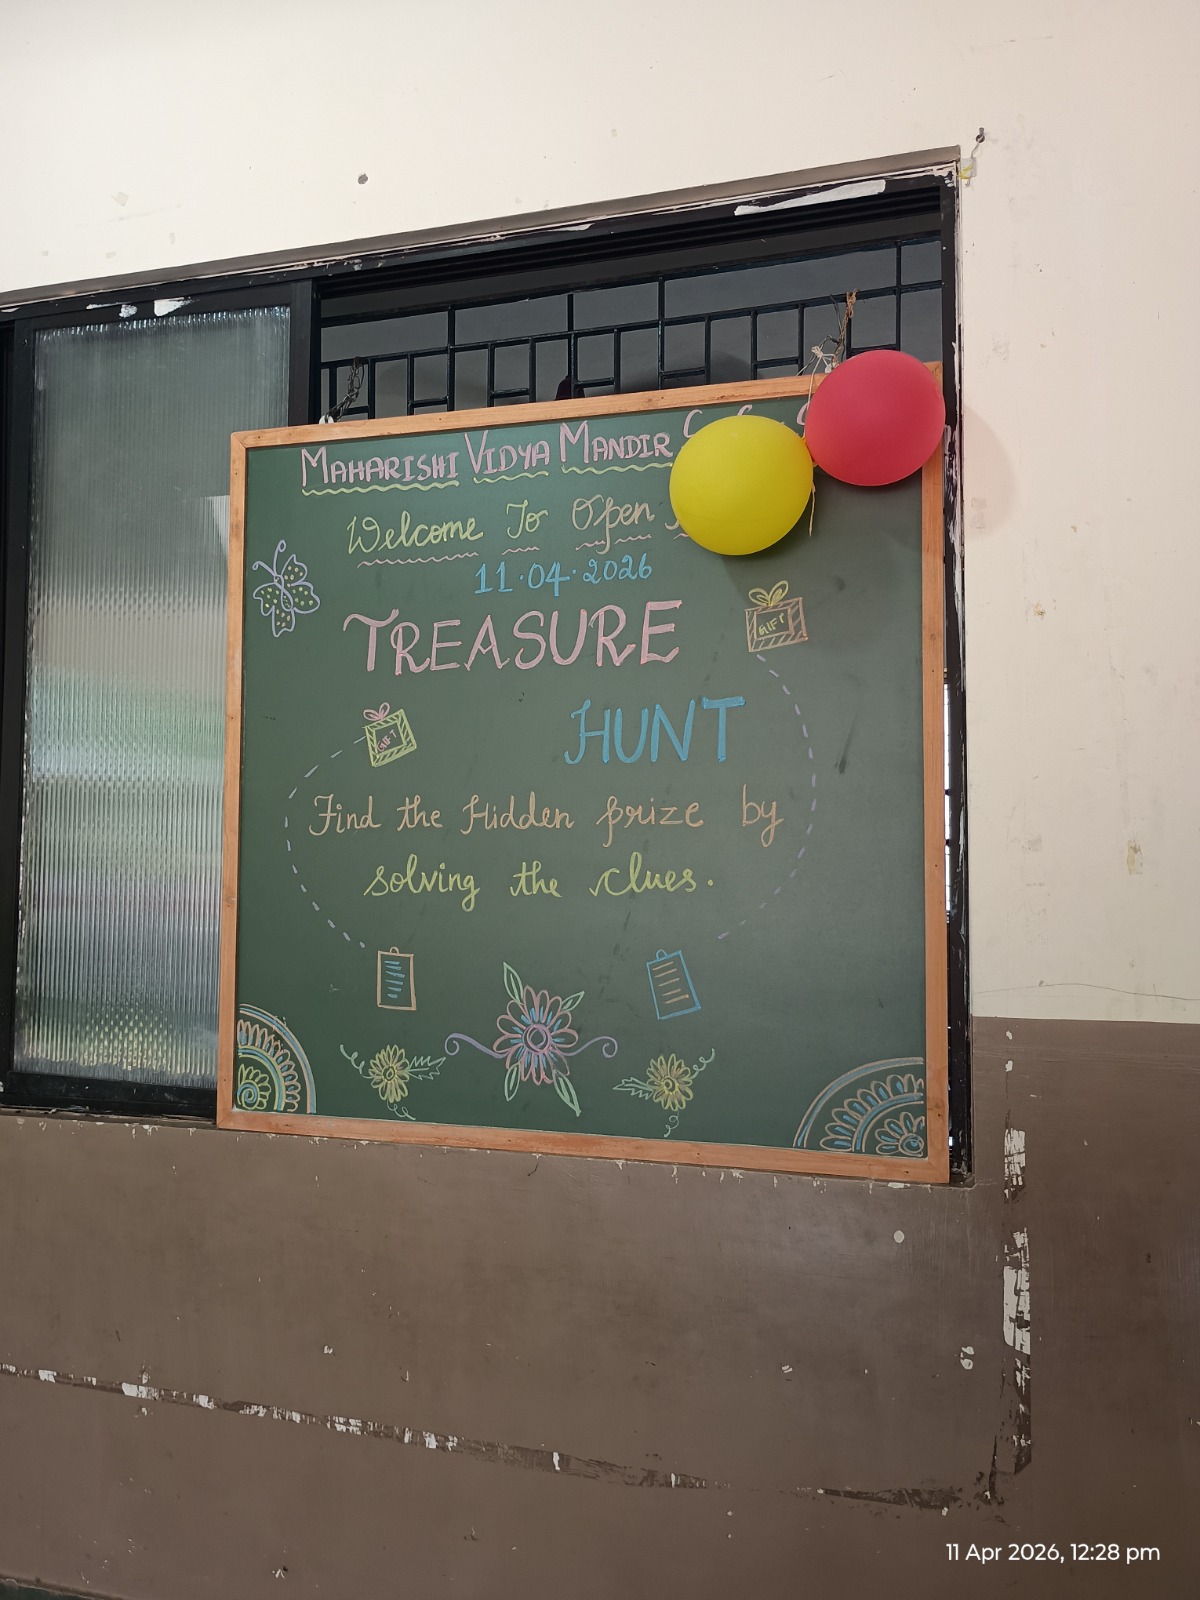 MAHARISHI VIDYA MANDIR
Welcome To Open
11.04.2026
TREASURE
GIFT
HUNT
GIFT
Find the Hidden prize by
solving the clues.
11 Apr 2026, 12:28 pm